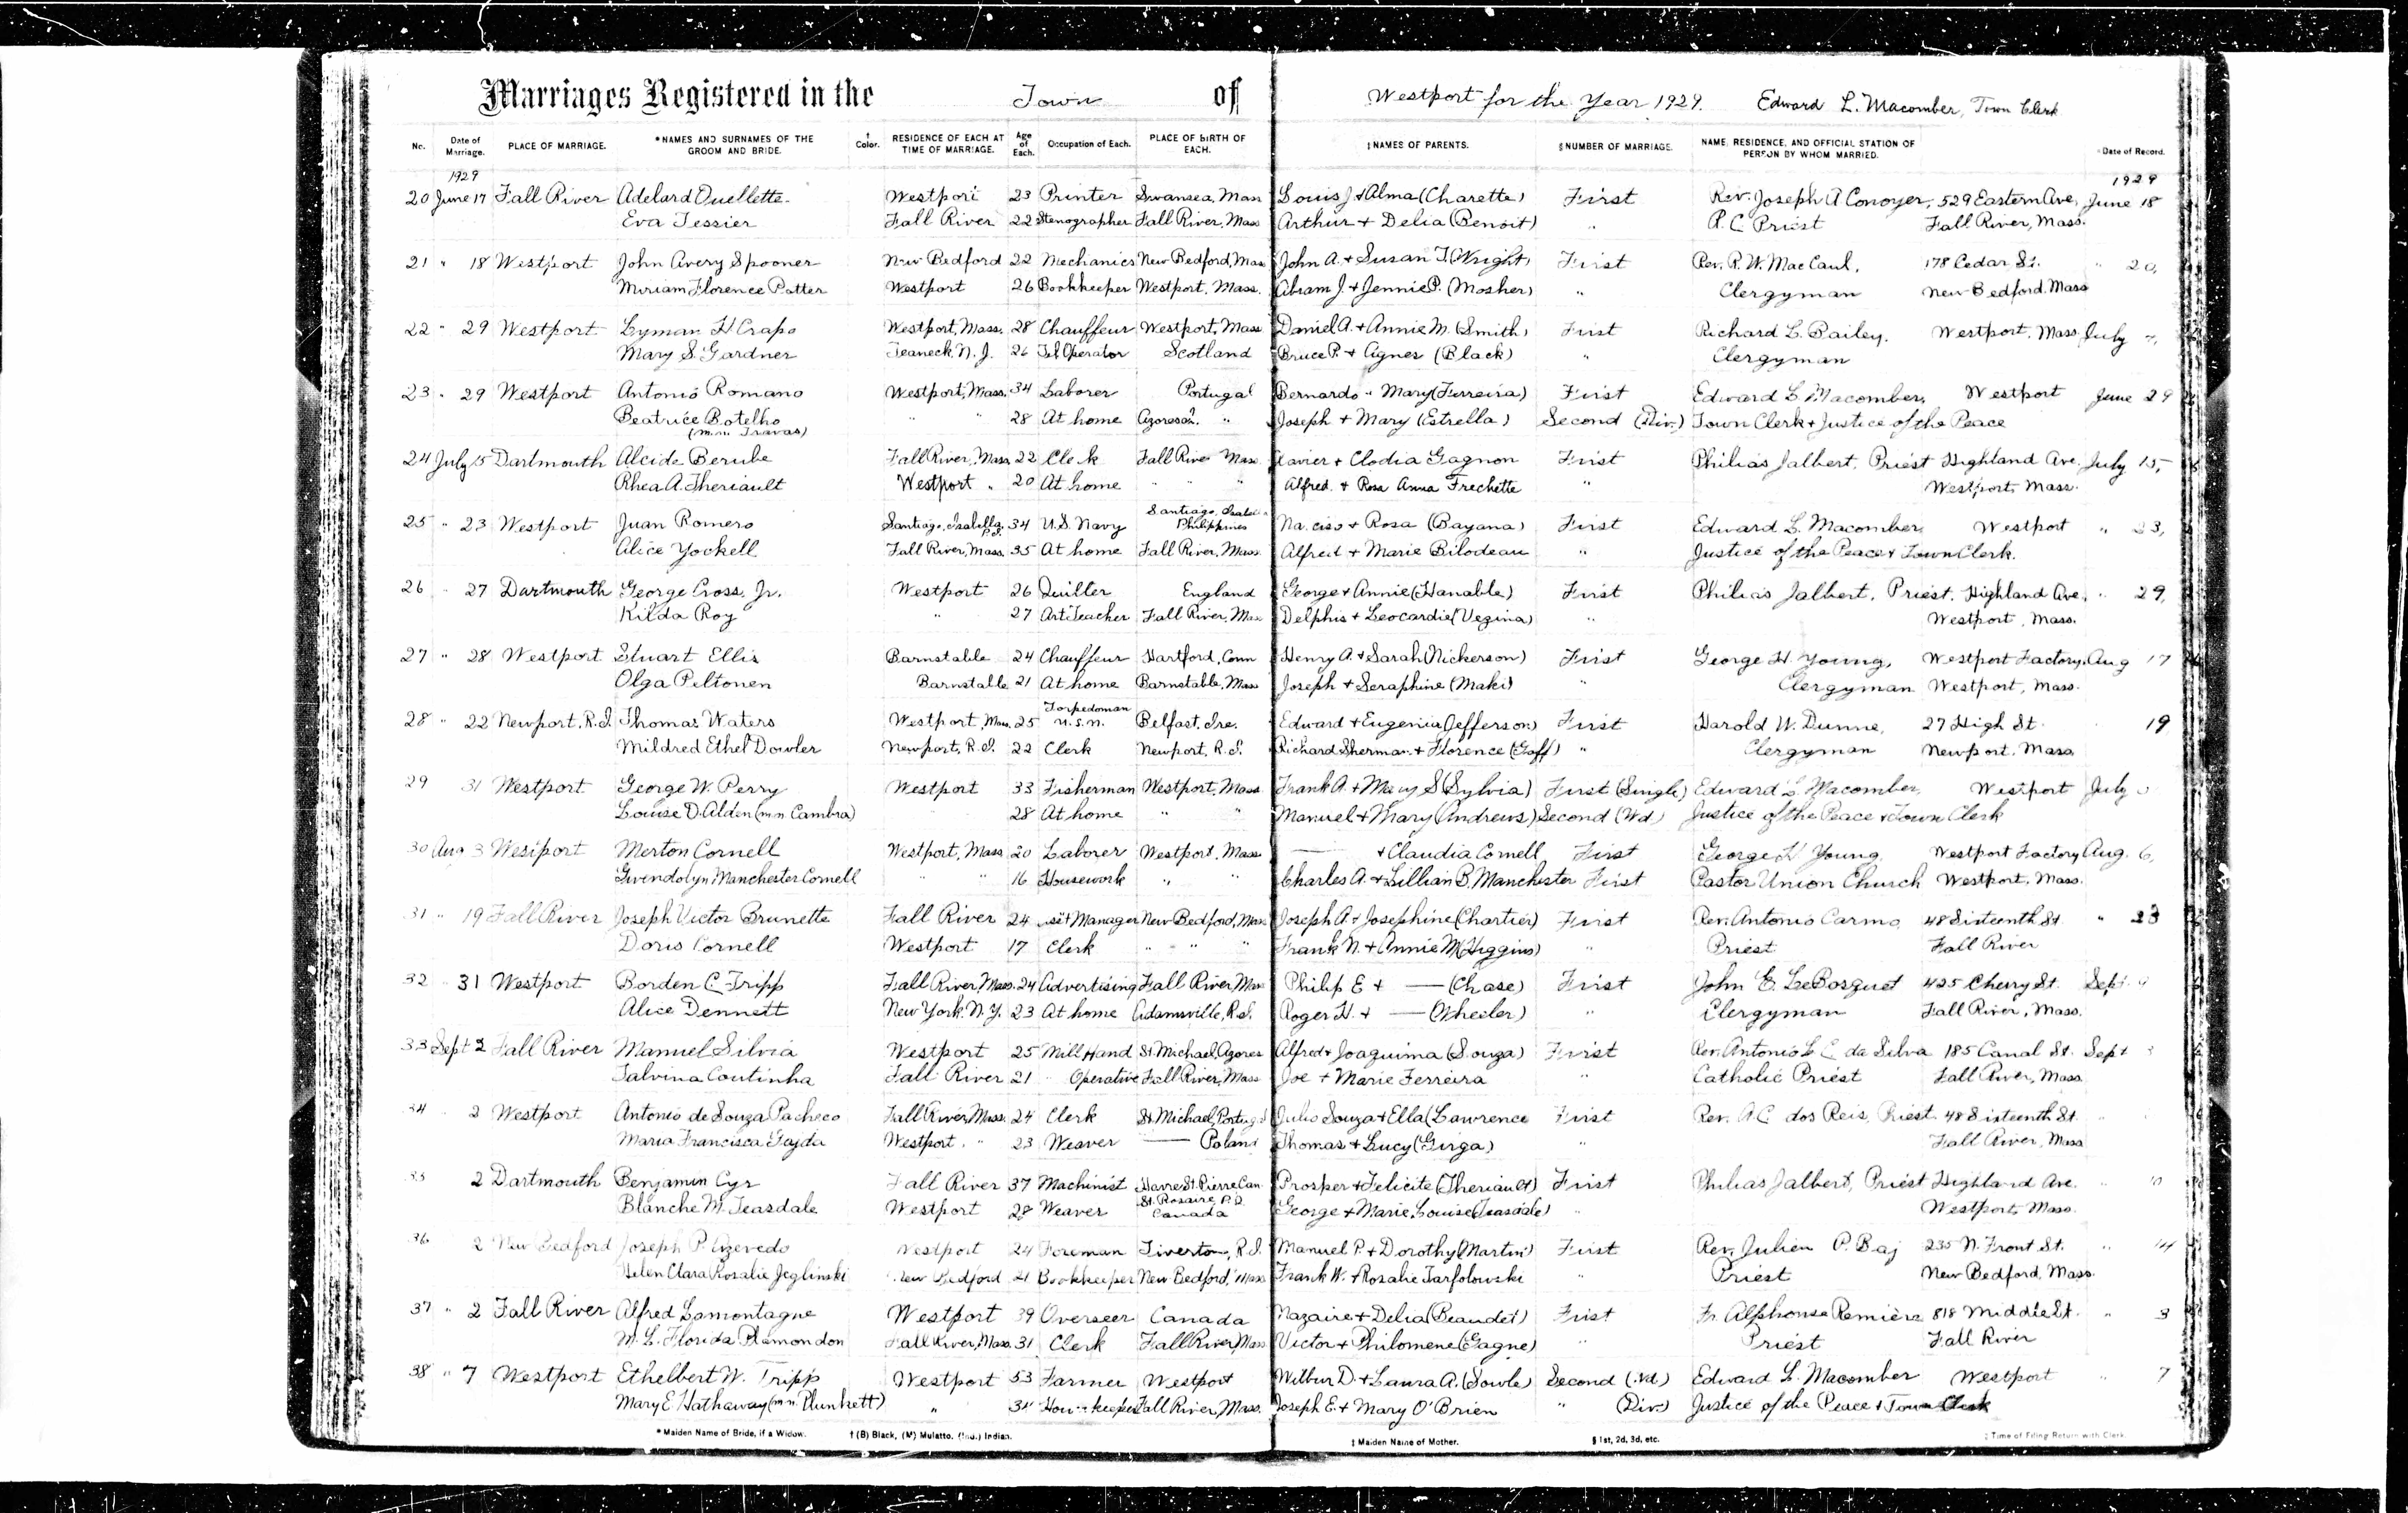 Marriages Registered in the Town of Westport for the Year 1929. Edward L. Macomber, Town Clerk
No. Date of Marriage. PLACE OF MARRIAGE. *NAMES AND SURNAMES OF THE GROOM AND BRIDE. † Color. RESIDENCE OF EACH AT TIME OF MARRIAGE. Age of Each. Occupation of Each. PLACE OF BIRTH OF EACH. ‡NAMES OF PARENTS. §NUMBER OF MARRIAGE. NAME, RESIDENCE, AND OFFICIAL STATION OF PERSON BY WHOM MARRIED. Date of Record.
1929 1929
20 June 17 Fall River Adelard Ouellette Westport 23 Printer Swansea, Mass Louis J + Alma (Charette) First Rev. Joseph A Conoyer, 529 Eastern Ave, June 18
Eva Tessier Fall River 22 Stenographer Fall River, Mass Arthur + Delia (Benoit) " R.C. Priest Fall River, Mass.
21 " 18 Westport John Avery Spooner New Bedford 22 Mechanics New Bedford, Mass John A. + Susan T. (Wright) First Rev. R. W. MacCaul, 178 Cedar St. " 20,
Miriam Florence Potter Westport 26 Bookkeeper Westport, Mass. Abram J + Jennie P. (Mosher) " Clergyman New Bedford Mass
22 " 29 Westport Lyman H Crapo Westport, Mass. 28 Chauffeur Westport, Mass Daniel A. + Annie M. (Smith) First Richard L. Bailey. Westport, Mass. July
Mary S. Gardner Teaneck, N. J. 26 Tel Operator Scotland Bruce P. + Agnes (Black) " Clergyman
23 " 29 Westport Antonio Romano Westport, Mass. 34 Laborer Portugal Bernardo " Mary (Ferreira) First Edward L Macomber, Westport June 29
Beatrice Botelho " " 28 At home Azores " Joseph + Mary (Estrella) Second (Div.) Town Clerk + Justice of the Peace
(m.n. Travas)
24 July 15 Dartmouth Alcide Berube Fall River, Mass 22 Clerk Fall River Mass Xavier + Clodia Gagnon First Philias Jalbert, Priest Highland Ave. July 15,
Rhea A. Theriault Westport " 20 At home " " " Alfred + Rosa Anna Frechette " Westport, Mass.
25 " 23 Westport Juan Romero Santiago, Isabella, P.I. 34 U.S. Navy Santiago, Philippines Narciso + Rosa (Bayana) First Edward L. Macomber, Westport " 23,
Alice Yockell Fall River, Mass. 35 At home Fall River, Mass. Alfred + Marie Bilodeau " Justice of the Peace + Town Clerk.
26 " 27 Dartmouth George Cross, Jr. Westport 26 Quiller England George + Annie (Hanable) First Philias Jalbert, Priest, Highland Ave. " 29,
Kilda Roy " 27 Art Teacher Fall River, Mass Delphis + Leocardie (Vegina) " Westport, Mass.
27 " 28 Westport Stuart Ellis Barnstable 24 Chauffeur Hartford, Conn Henry A. + Sarah (Nickerson) First George H. Young, Westport Factory, Aug 17
Olga Peltonen Barnstable 21 At home Barnstable, Mass Joseph + Seraphine (Maki) " Clergyman Westport, Mass.
28 " 22 Newport, R.I. Thomas Waters Westport, Mass. 25 Torpedoman U.S.N. Belfast, Ire. Edward + Eugenia (Jefferson) First Harold W. Dunne, 27 High St. 19
Mildred Ethel Dowler Newport, R.I. 22 Clerk Newport, R.I. Richard Sherman + Florence (Goff) " Clergyman Newport, Mass
29 31 Westport George W. Perry Westport 33 Fisherman Westport, Mass. Frank A. + Mary S (Sylvia) First (Single) Edward L Macomber, Westport July
Louise D. Alden (m.n Cambra) 28 At home " " Manuel + Mary (Andrews) Second (Wd.) Justice of the Peace + Town Clerk
30 Aug 3 Westport Merton Cornell Westport, Mass 20 Laborer Westport, Mass — + Claudia Cornell First George H Young, Westport Factory Aug. 6,
Gwendolyn Manchester Cornell " " 16 Housework " " Charles A. + Lillian B. Manchester First Pastor Union Church Westport, Mass.
31 " 19 Fall River Joseph Victor Brunette Fall River 24 Manager New Bedford, Mass Joseph A. + Josephine (Chartier) First Rev. Antonio Carmo 48 Sixteenth St " 23
Doris Cornell Westport 17 Clerk " " " Frank N. + Annie M (Higgins) " Priest Fall River
32 " 31 Westport Borden C. Tripp Fall River, Mass. 24 Advertising Fall River Mass Philip E + — (Chase) First John E. LeBosquet 425 Cherry St. Sept.
Alice Dennett New York N.Y. 23 At home Adamsville, R.I. Roger H. + — (Wheeler) " Clergyman Fall River, Mass.
33 Sept 2 Fall River Manuel Silvia Westport 25 Mill Hand St Michael, Azores Alfred + Joaquima (Souza) First Rev. Antonio L C da Silva 185 Canal St. Sept
Talvina Coutinha Fall River 21 " Operative Fall River, Mass Joe + Marie Ferreira " Catholic Priest Fall River, Mass
34 2 Westport Antonio de Souza Pacheco Fall River Mass. 24 Clerk St. Michael, Portugal Julio Souza + Ella (Lawrence First Rev. A C dos Reis, Priest 48 Sixteenth St. "
Maria Francisca Gajda Westport, " 23 Weaver — Poland Thomas + Lucy (Girga) " Fall River, Mass
35 2 Dartmouth Benjamin Cyr Fall River 37 Machinist Havre St. Pierre Can Prosper + Felicite (Theriault) First Philias Jalbert, Priest Highland Ave. " 10
Blanche M. Teasdale Westport 28 Weaver St. Rosaire, P.Q. Canada George + Marie Louise (Teasdale) " Westport, Mass.
36 2 New Bedford Joseph P. Azevedo Westport 24 Foreman Tiverton, R.I. Manuel P. + Dorothy (Martin) First Rev. Julien P. Baj 235 N. Front St. " 14
Helen Clara Rosalie Jeglinski New Bedford 21 Bookkeeper New Bedford, Mass Frank W. + Rosalie Tarfolowski " Priest New Bedford, Mass.
37 " 2 Fall River Alfred Lamontagne Westport 39 Overseer Canada Nazaire + Delia (Beaudet) First Fr. Alphonse Remière 818 Middle St. " 3
M. L. Florida Plamondon Fall River, Mass. 31 Clerk Fall River, Mass Victor + Philomene (Gagne) " Priest Fall River
38 " 7 Westport Ethelbert W. Tripp Westport 53 Farmer Westport Wilbur D. + Laura A. (Sowle) Second (Wd.) Edward L. Macomber Westport " 7
Mary E. Hathaway (m.n. Plunkett) " Housekeeper Fall River, Mass. Joseph E. + Mary O'Brien " (Div.) Justice of the Peace + Town Clerk
* Maiden Name of Bride, if a Widow. † (B) Black, (M) Mulatto, (Ind.) Indian. ‡ Maiden Name of Mother. § 1st, 2d, 3d, etc. Time of Filing Return with Clerk.